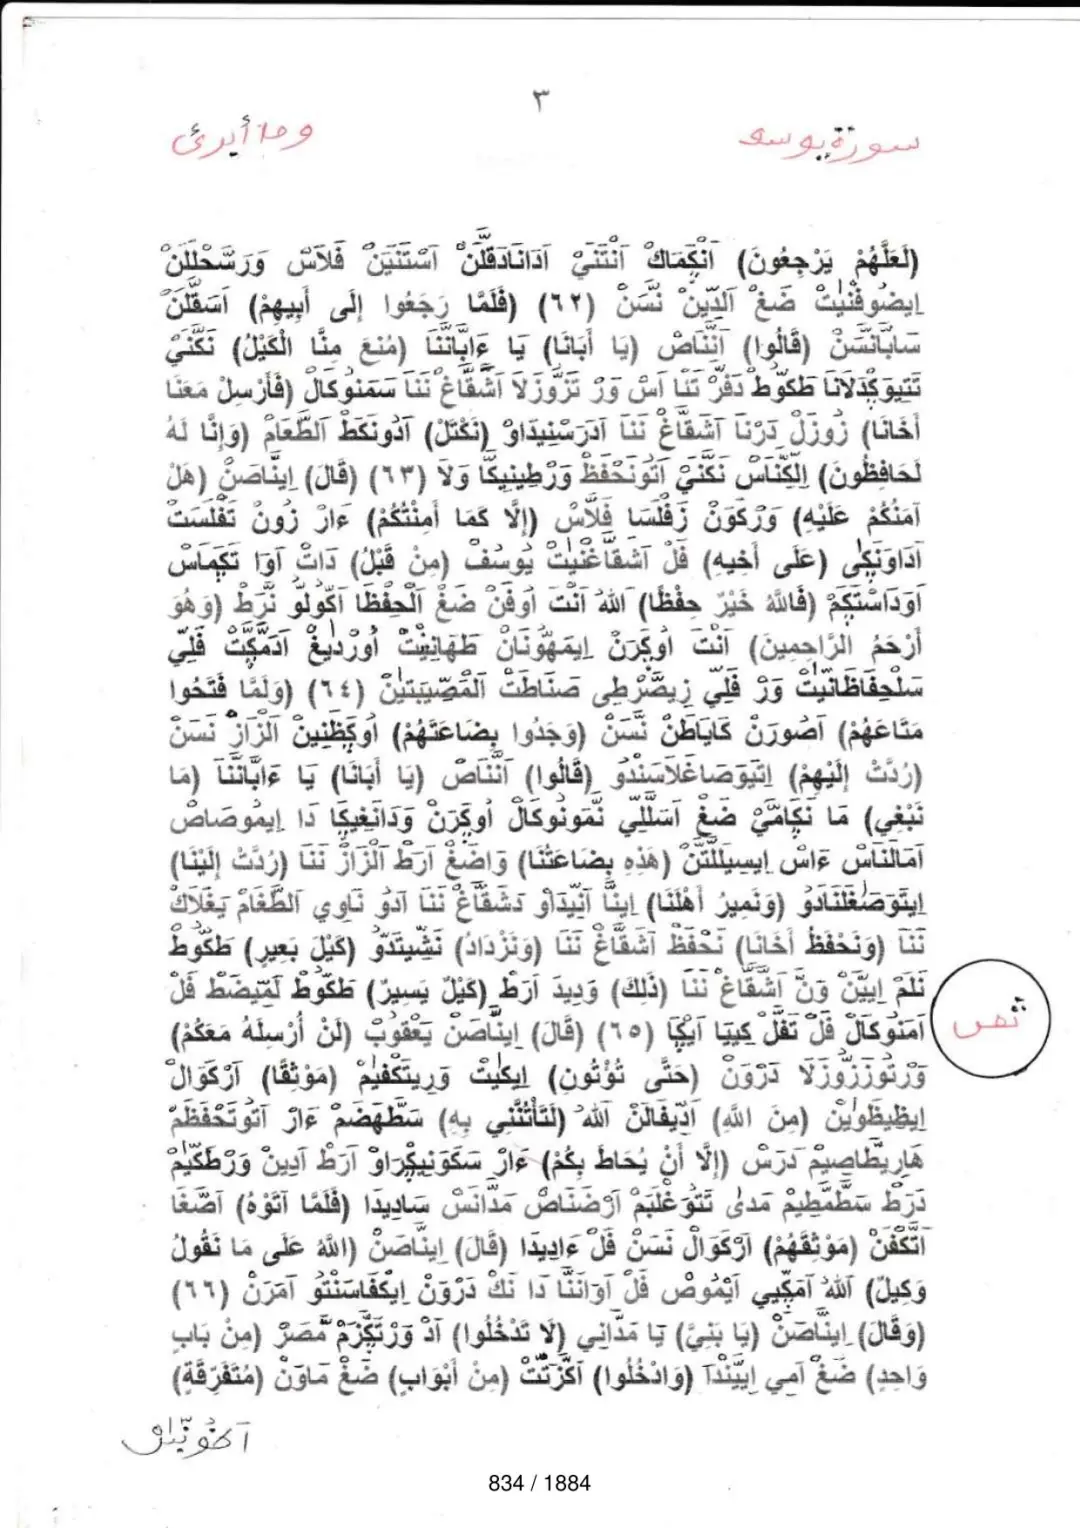 ٣
سورة يوسف
وما أبرئ
(لَعَلَّهُمْ يَرْجِعُونَ) اَنْكِمَاكْ اَنْتَنَيْ اَدَانَادَقَلَّنْ اَسْتَنَيَنْ فَلَاسْ وَرَسَّحْلَلَنْ
اِيضُوفْنِيْتْ ضَغْ اَلدِّينْ نَسَنْ (٦٢) (فَلَمَّا رَجَعُوا إِلَى أَبِيهِمْ) اَسَقَّلَنْ
سَابَانَسَّنْ (قَالُوا) اَنَّنَاصْ (يَا أَبَانَا) يَا ءَابَّانَنَّا (مُنِعَ مِنَّا الْكَيْلُ) نَكَّنَيْ
تَتِيوَكْدَلَانَا طَكُوطْ دَفَرْ تَنَا اَسْ وَرْ تَزُّوزَلَا اَشَقَّاغْ نَنَا سَمَنُوكَالْ (فَأَرْسِلْ مَعَنَا
أَخَانَا) زُوزَلْ دَرْنَا اَشَقَّاغْ نَنَا اَدَرَسْنِيدَاوْ (نَكْتَلْ) اَدُونَكَطْ اَلطَّعَامْ (وَإِنَّا لَهُ
لَحَافِظُونَ) اِلْكِنَاسْ نَكَّنَيْ اَتُونَحْفَظْ وَرْطِينِيكَّا وَلَا (٦٣) (قَالَ) اِينَّاصَنْ (هَلْ
آمَنُكُمْ عَلَيْهِ) وَرْكَوَنْ زَفَلْسَا فَلَّاسْ (إِلَّا كَمَا أَمِنْتُكُمْ) ءَارْ زُونْ تَفْلَسْتْ
اَدَاوَنِكَى (عَلَى أَخِيهِ) فَلْ اَشَقَّاغْنِيْتْ يُوسُفْ (مِنْ قَبْلُ) دَاتْ اَوَا تَكَمَاسْ
اَوَدَاسْتَكَمْ (فَاللهُ خَيْرٌ حِفْظًا) اَللهُ اَنْتَ اُوفَنْ ضَغْ اَلْحِفْظَا اَكُولُو نَرَطْ (وَهُوَ
أَرْحَمُ الرَّاحِمِينَ) اَنْتَ اُوكَرَنْ اِيمَهُّونَانْ طَهَانِيْتْ اُورْدِيغْ اَدَمَّكَّتْ فَلِّي
سَلْحِفَاظَانِيْتْ وَرْ فَلِّي زِيصَّرْطِى صَنَاطَتْ اَلْمَصِيبَتِيْنْ (٦٤) (وَلَمَّا فَتَحُوا
مَتَاعَهُمْ) اَصُورَنْ كَايَاطَنْ نَسَّنْ (وَجَدُوا بِضَاعَتَهُمْ) اُوكَظَنِينْ اَلْزَازْ نَسَنْ
(رُدَّتْ إِلَيْهِمْ) اِتِيوَصَاغَلَاسَنْدُو (قَالُوا) اَنَّنَاصْ (يَا أَبَانَا) يَا ءَابَّانَنَّا (مَا
نَبْغِي) مَا نَكَامَيْ ضَغْ اَسَلَّلِي نَّمَنُوكَالْ اُوكَرَنْ وَدَانَغِيكَا دَا اِيمُوصَاصْ
اَمَالْنَاسْ ءَاسْ اِيسِيلَلْتَنْ (هَذِهِ بِضَاعَتُنَا) وَاضَغْ اَرَطْ اَلْزَازْ نَنَا (رُدَّتْ إِلَيْنَا)
اِيتَوَصَغَلْنَادُو (وَنَمِيرُ أَهْلَنَا) اِينَّا اَنِّيدَاوْ دَشَقَّاغْ نَنَا اَدُو نَاوِي اَلطَّعَامْ يَغْلَاكْ
نَنَا (وَنَحْفَظُ أَخَانَا) نَحْفَظْ اَشَقَّاغْ نَنَا (وَنَزْدَادُ) نَشَّيْتَدُو (كَيْلَ بَعِيرٍ) طَكُوطْ
نَلَمْ اِيَّيَنْ وَنَّ اَشَقَّاغْ نَنَا (ذَلِكَ) وَدِيدَ اَرَطْ (كَيْلٌ يَسِيرٌ) طَكُوطْ لَمِيضَطْ فَلْ
اَمَنُوكَالْ فَلْ تَفَلْ كِيْيَا اَيْكَا (٦٥) (قَالَ) اِينَّاصَنْ يَعْقُوبْ (لَنْ أُرْسِلَهُ مَعَكُمْ)
وَرْتُوزَزُّوزَلَا دَرْوَنْ (حَتَّى تُؤْتُونِ) اِيكِيْتْ وَرِيتَكَفِيْمْ (مَوْثِقًا) اَرْكَوَالْ
اِيظِيظَوِيْنْ (مِنَ اللَّهِ) اَدِّيفَالَنْ اَللهُ (لَتَأْتُنَّنِي بِهِ) سَطَّهَضَمْ ءَارْ اَتُوتَحْفَظَمْ
هَارِيطَّاصِيمْ دَرَسْ (إِلَّا أَنْ يُحَاطَ بِكُمْ) ءَارْ سَكَوَنِيكْرَاوْ اَرَطْ اَدِينْ وَرْطَكِّيمْ
دَرَطْ سَطَّمَطِيمْ مَدَى تَتَوَغْلَبَمْ اَرْضَنَاصْ مَدَّانَسْ سَادِيدَا (فَلَمَّا آتَوْهُ) اَضَّغَا
اَتَّكَفَنْ (مَوْثِقَهُمْ) اَرْكَوَالْ نَسَنْ فَلْ ءَادِيدَا (قَالَ) اِينَّاصَنْ (اللهُ عَلَى مَا نَقُولُ
وَكِيلٌ) اَللهُ اَمَكَّيِي اَيْمُوصْ فَلْ اَوَانَنَّا دَا نَكْ دَرْوَنْ اِيكْفَاسَنْتُو اَمَرَنْ (٦٦)
(وَقَالَ) اِينَّاصَنْ (يَا بَنِيَّ) يَا مَدَّانِي (لَا تَدْخُلُوا) اَدْ وَرْتَكَّزَمْ مَصَرْ (مِنْ بَابٍ
وَاحِدٍ) ضَغْ اَمِي اِيَّيَنْدَا (وَادْخُلُوا) اَكَّزَتْ (مِنْ أَبْوَابٍ) ضَغْ مَاوَنْ (مُتَفَرِّقَةٍ)
834 / 1884